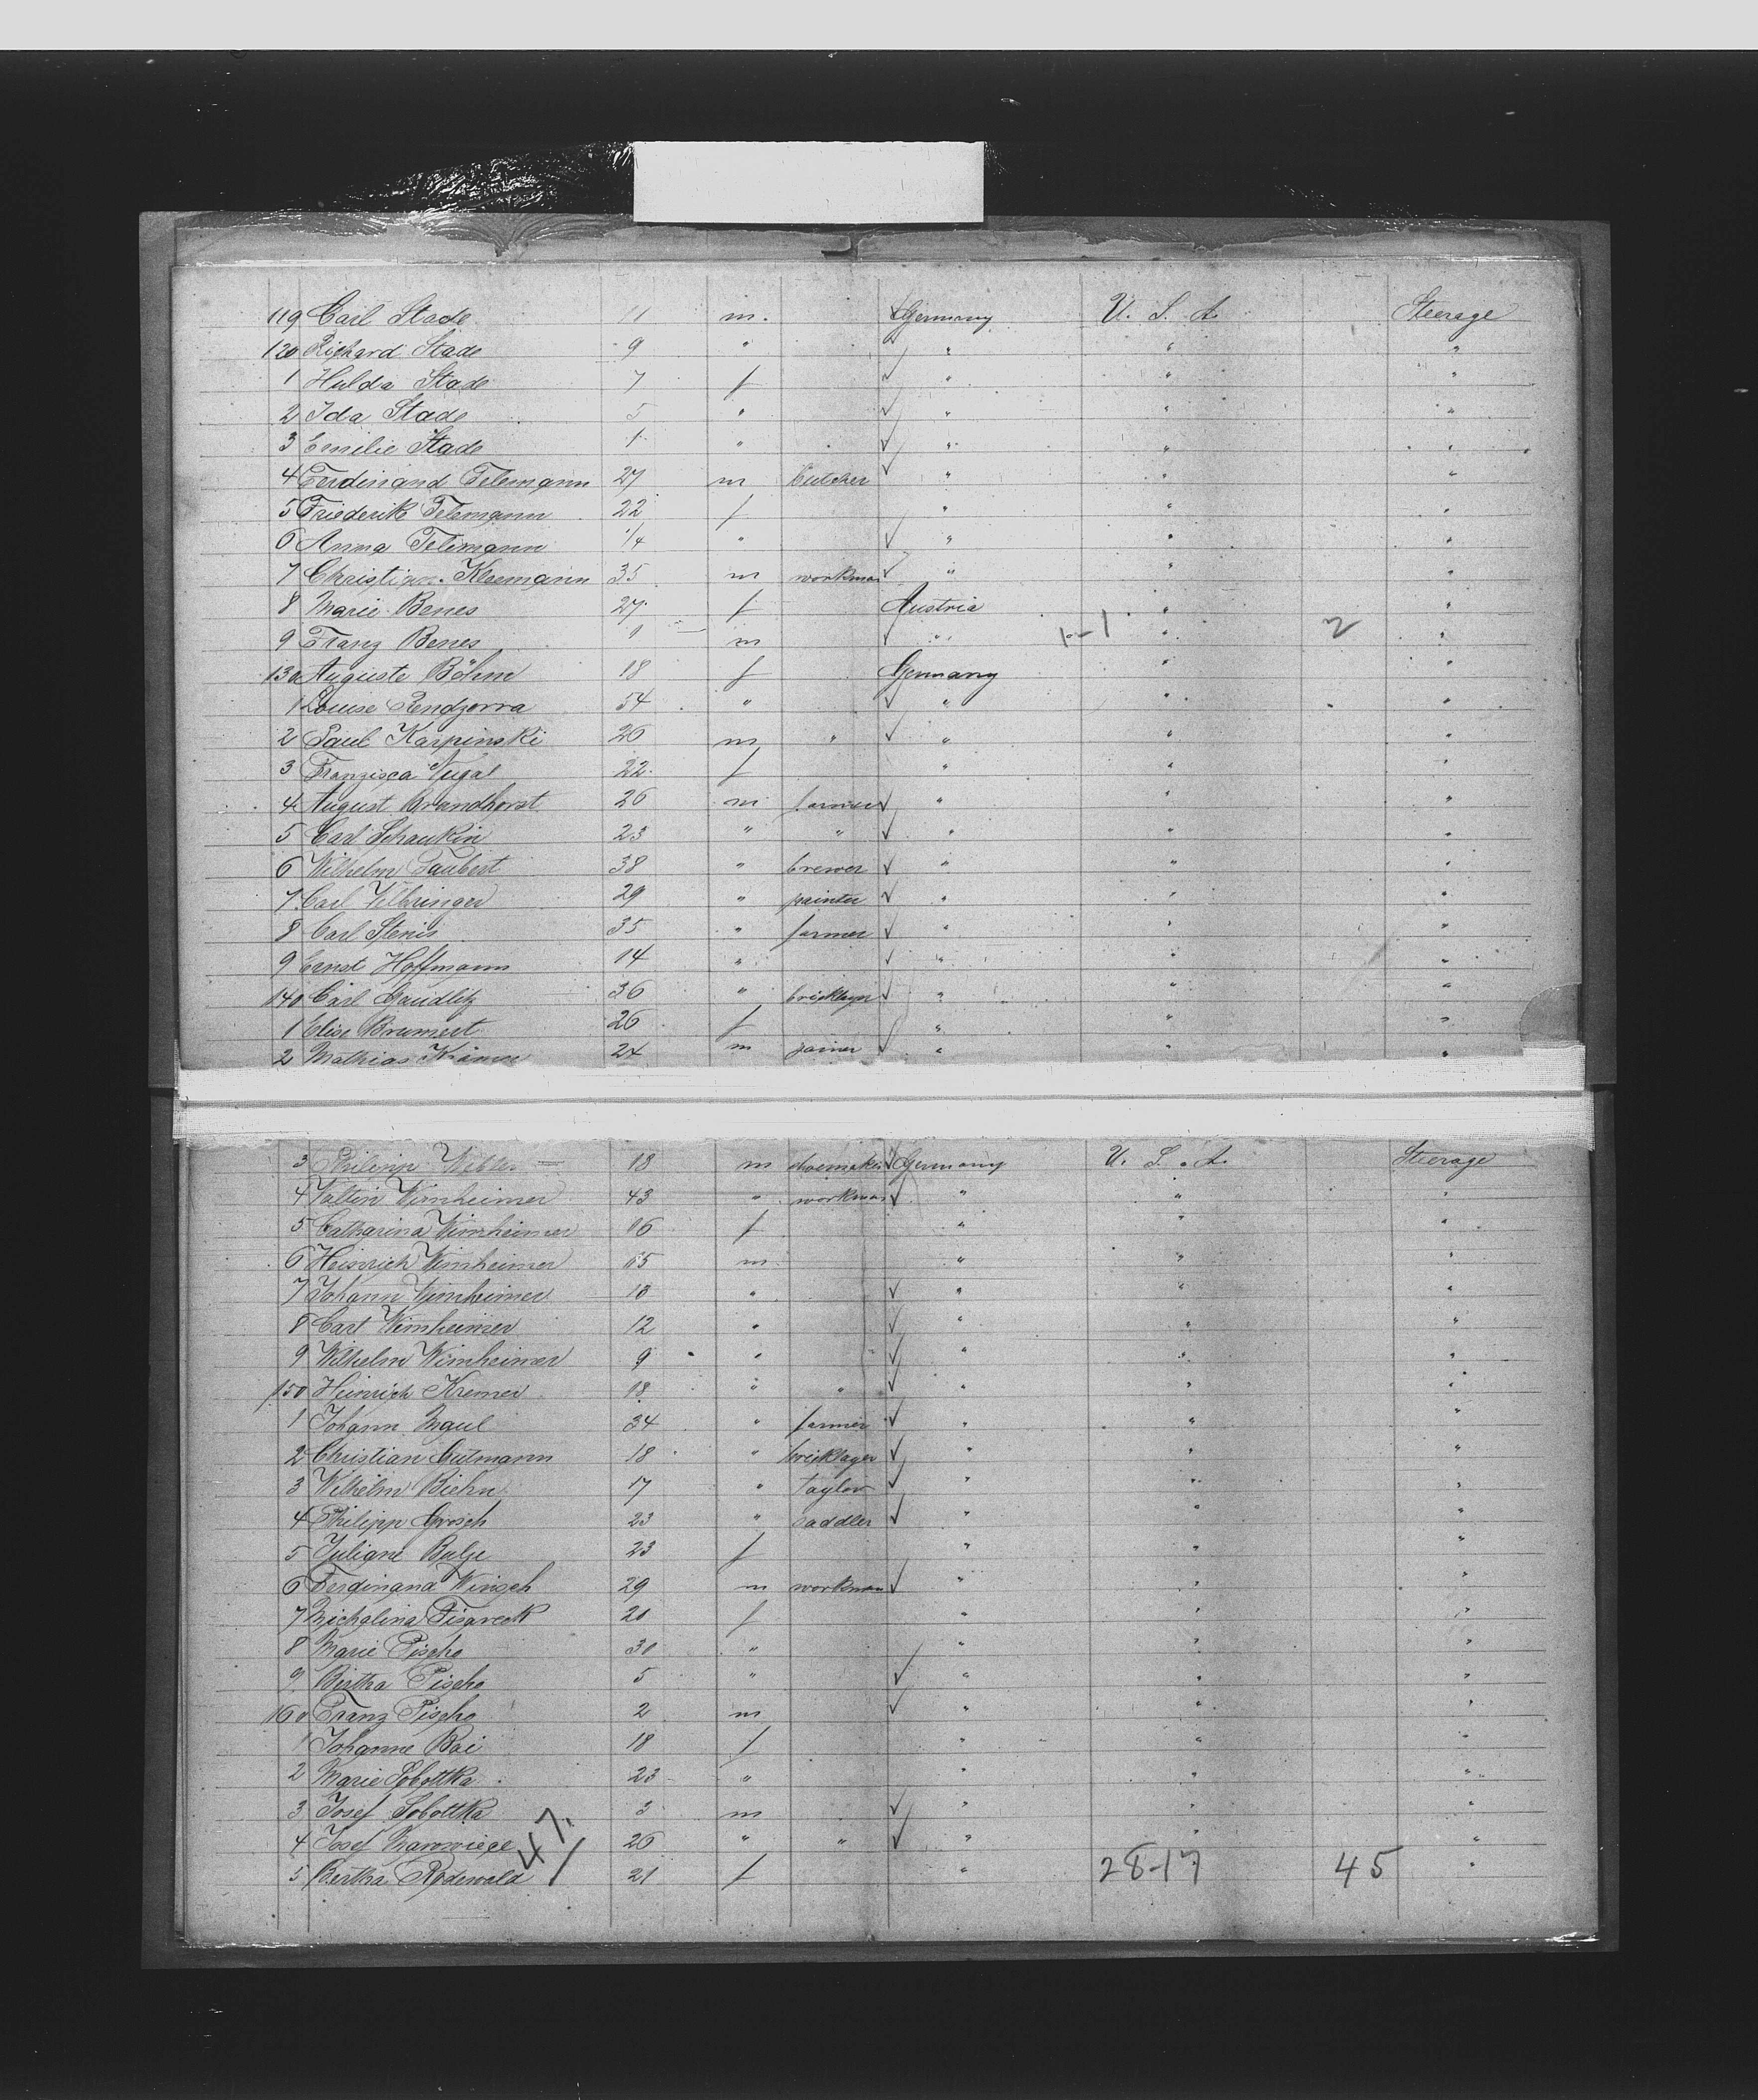 119 Carl Stade 11 m. Germany U. S. A. Steerage
120 Richard Stade 9 " " " "
1 Hulda Stade 7 f " " "
2 Ida Stade 5 " " " "
3 Emilie Stade 1 " " " "
4 Ferdinand Telemann 27 m butcher " " "
5 Friederike Telemann 22 f " " "
6 Anna Telemann 1/4 " " " "
7 Christian Kleemann 35 m workman " " "
8 Marie Benes 27 f Austria " "
9 Franz Benes 1 m " 1-1 " 2 "
130 Auguste Böhm 18 f Germany " "
1 Louise Rendzorra 54 " " " "
2 Paul Karpinski 26 m " " " "
3 Franzisca 22 f " " "
4 August Brandhorst 26 m farmer " " "
5 Carl Schaukin 23 " " " " "
6 Wilhelm Taubert 38 " brewer " " "
7 Carl 29 " painter " " "
8 Carl Stenis 35 " farmer " " "
9 Ernst Hoffmann 14 " " " "
140 Carl Gaudlitz 36 " bricklayer " " "
1 Elise Brumert 26 f " " "
2 Mathias 24 m joiner " " "
3 Philipp 18 m shoemaker Germany U. S. A. Steerage
4 Valtin Wirnheimer 43 " workman " " "
5 Catharina Wirnheimer 16 f " " "
6 Heinrich Wirnheimer 15 m " " "
7 Johann Wirnheimer 13 " " " "
8 Carl Wirnheimer 12 " " " "
9 Wilhelm Wirnheimer 9 " " " "
150 Heinrich Kremer 18 " " " " "
1 Johann Maul 34 " farmer " " "
2 Christian Gutmann 18 " bricklayer " " "
3 Wilhelm Biehn 17 " taylor " " "
4 Philipp Grosch 23 " saddler " " "
5 Juliane Bulje 23 f " " "
6 Ferdinand Wirsch 29 m workman " " "
7 Michalina Pisareck 20 f " " "
8 Marie Pischo 30 " " " "
9 Bertha Pischo 5 " " " "
160 Franz Pischo 2 m " " "
1 Johanne Bai 18 f " " "
2 Marie Sobottka 23 " " " "
3 Josef Sobottka 3 m " " "
4 Josef 26 " " " " "
5 Bertha Rodewald 47 21 f " 28-17 45 "